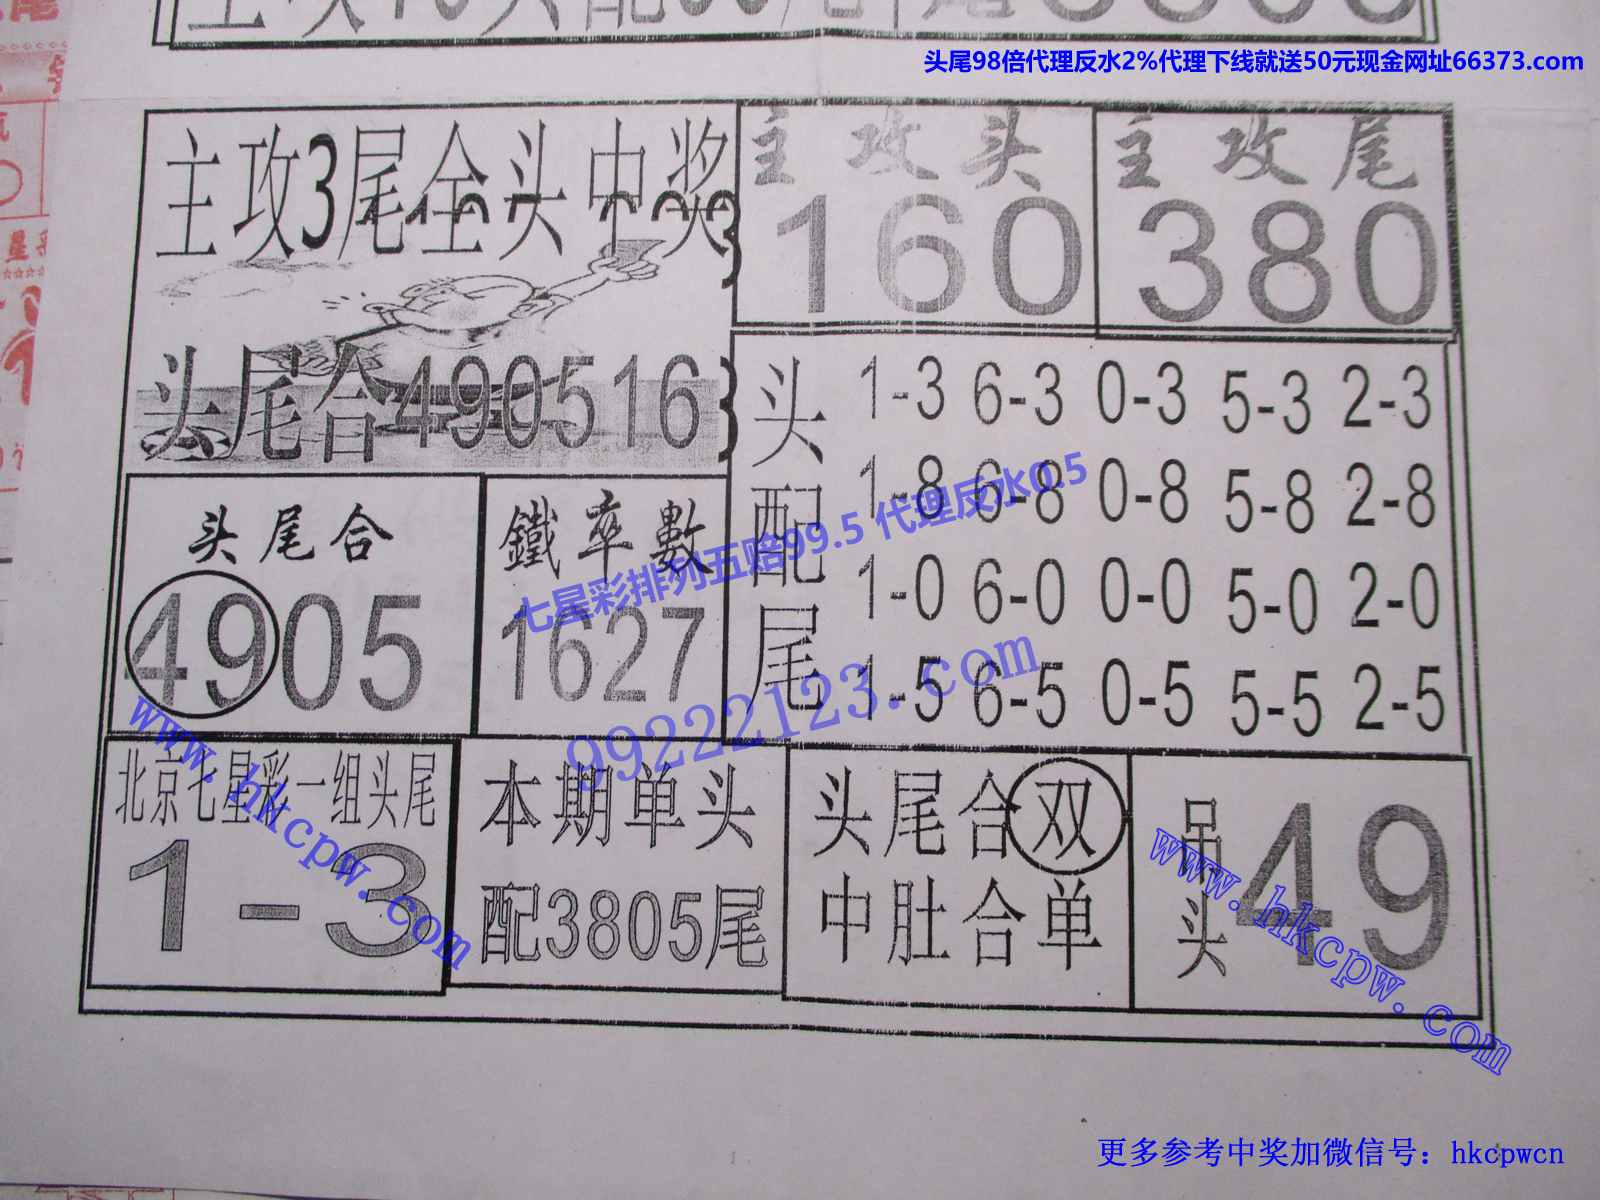 头尾98倍代理反水2%代理下线就送50元现金网址66373.com
主攻3尾全头中奖
主攻头
160
主攻尾
380
头尾合490516
头配尾
1-3 6-3 0-3 5-3 2-3
1-8 6-8 0-8 5-8 2-8
1-0 6-0 0-0 5-0 2-0
1-5 6-5 0-5 5-5 2-5
头尾合
4905
鐵率數
1627
七星彩排列五赔99.5 代理反水0.5
99222123.com
www.hkcpw.com
北京七星彩一组头尾
1-3
本期单头
配3805尾
头尾合双
中肚合单
吊头
49
www.hkcpw.com
更多参考中奖加微信号：hkcpwcn